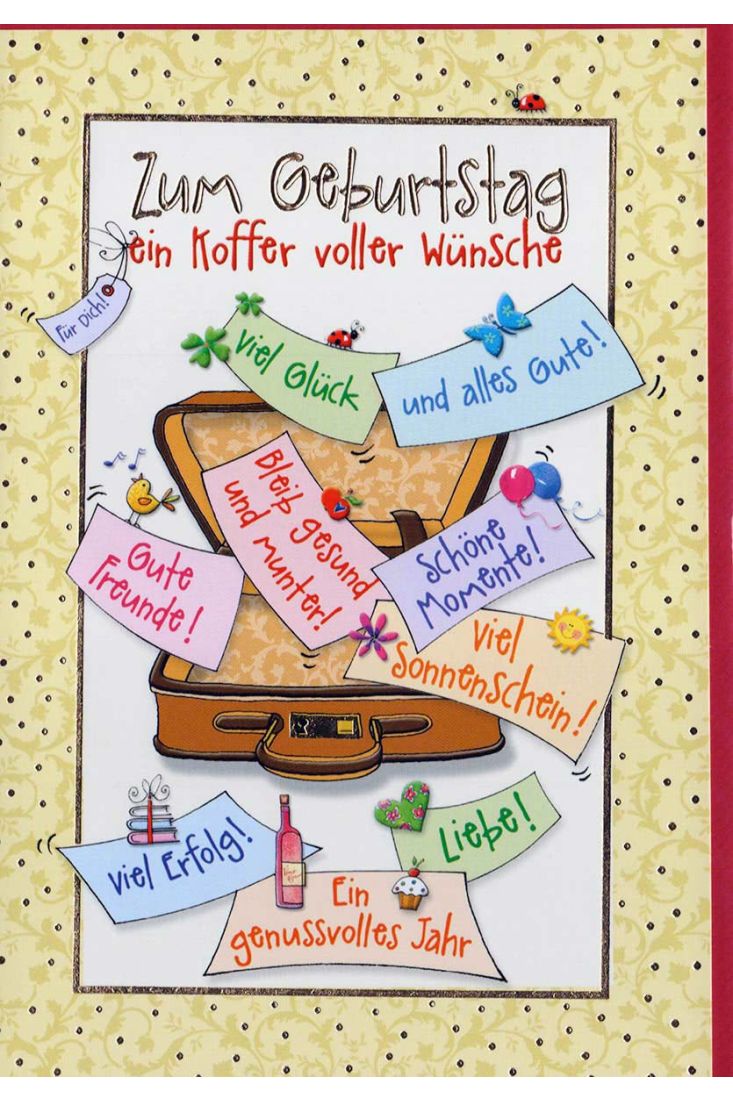 Zum Geburtstag
ein Koffer voller Wünsche
Für Dich!
Viel Glück
und alles Gute!
Bleib gesund
und munter!
Gute
Freunde!
Schöne
Momente!
Viel
Sonnenschein!
Viel Erfolg!
Liebe!
Ein
genussvolles Jahr